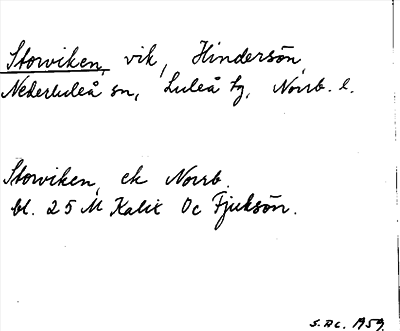 Storviken, vik, Hindersön,
Nederluleå sn, Luleå tg, Norrb. l.
Storviken, ek Norrb.
bl. 25 M Kalix Oc Fjuksön.
1959.